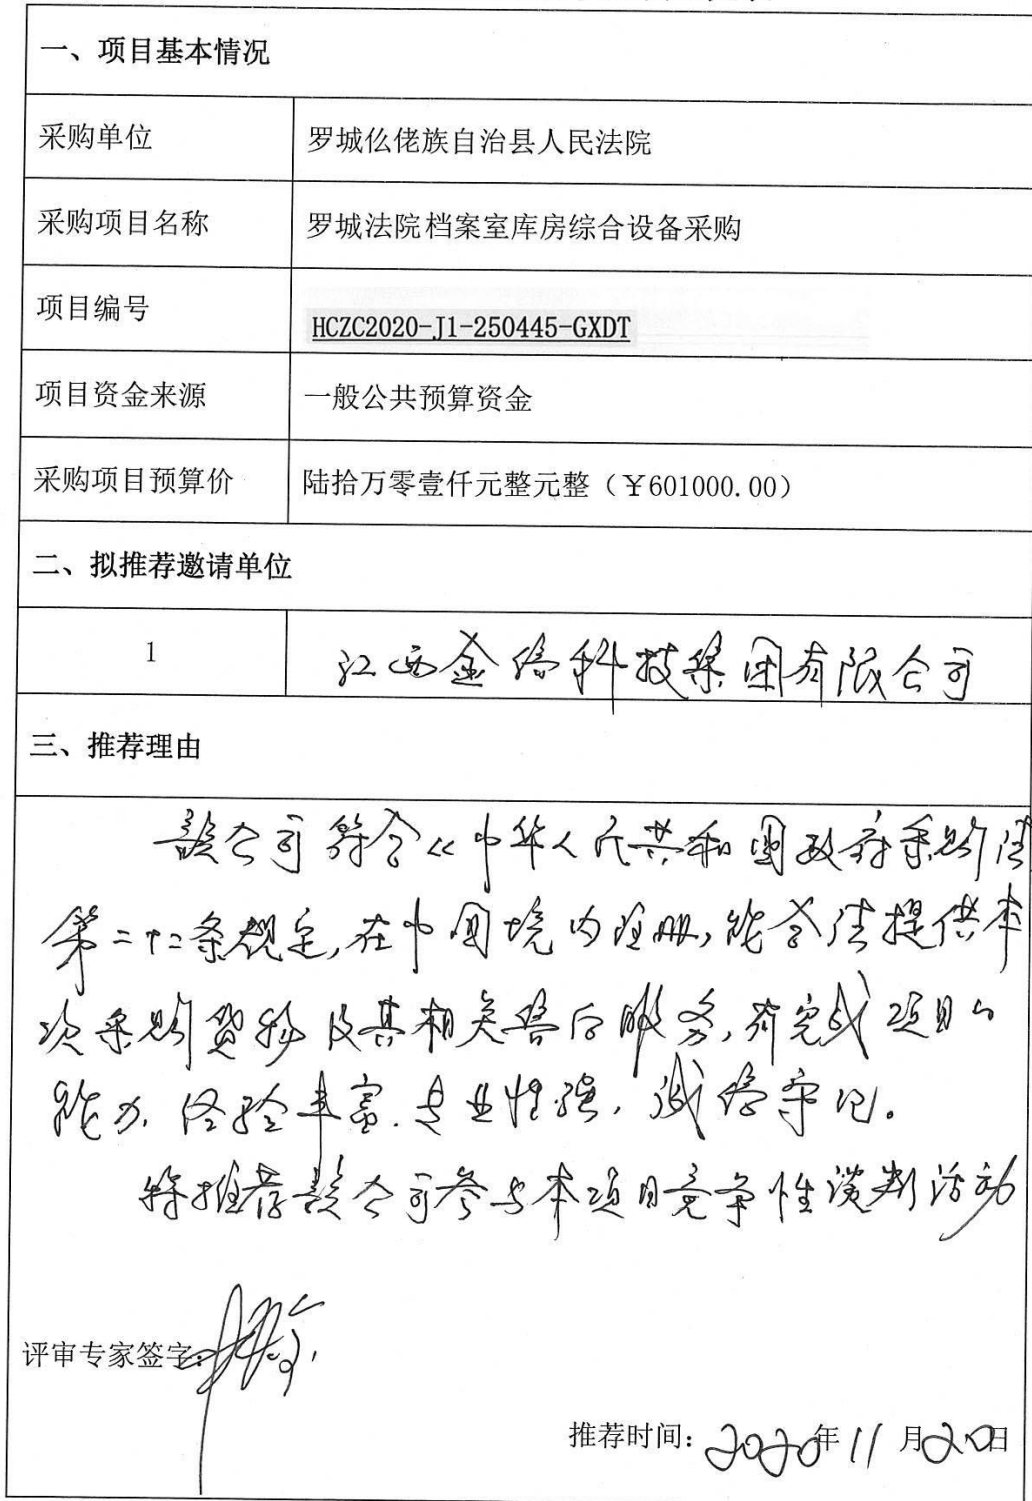 一、项目基本情况
采购单位 罗城仫佬族自治县人民法院
采购项目名称 罗城法院档案室库房综合设备采购
项目编号 HCZC2020-J1-250445-GXDT
项目资金来源 一般公共预算资金
采购项目预算价 陆拾万零壹仟元整元整（￥601000.00）
二、拟推荐邀请单位
1 江西金格科技集团有限公司
三、推荐理由
该公司符合《中华人民共和国政府采购法
第二十二条规定,在中国境内注册,能合法提供本
次采购货物及其相关售后服务,有完成项目的
能力,经验丰富.专业性强,诚信守法。
特推荐该公司参与本项目竞争性谈判活动
评审专家签字:
推荐时间: 2020年11月20日